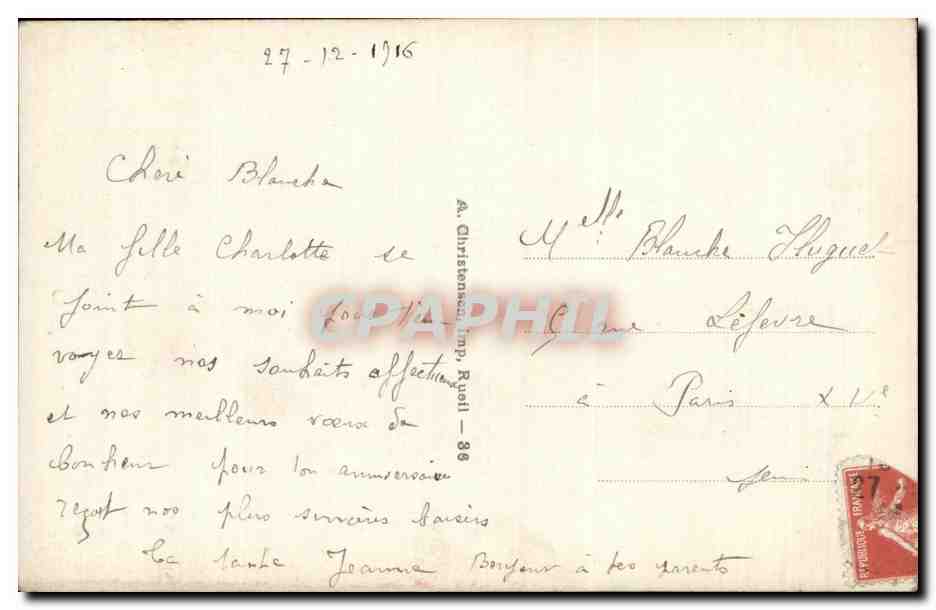 27-12-1916
Cheré Blanche
Ma fille Charlotte se
joint à moi pour t'en
voyez nos souhaits affectueux
et nos meilleurs vœux de
bonheur pour ton anniversaire
reçoit nos plus sincères baisers
ta tante Jeanne Bonjour à tes parents
A. Christensen, Imp, Rueil — 86
CPAPHIL
Melle Blanche Huguet
rue Léfevre
à Paris XVe
Seine
27
REPUBLIQUE FRANÇAISE